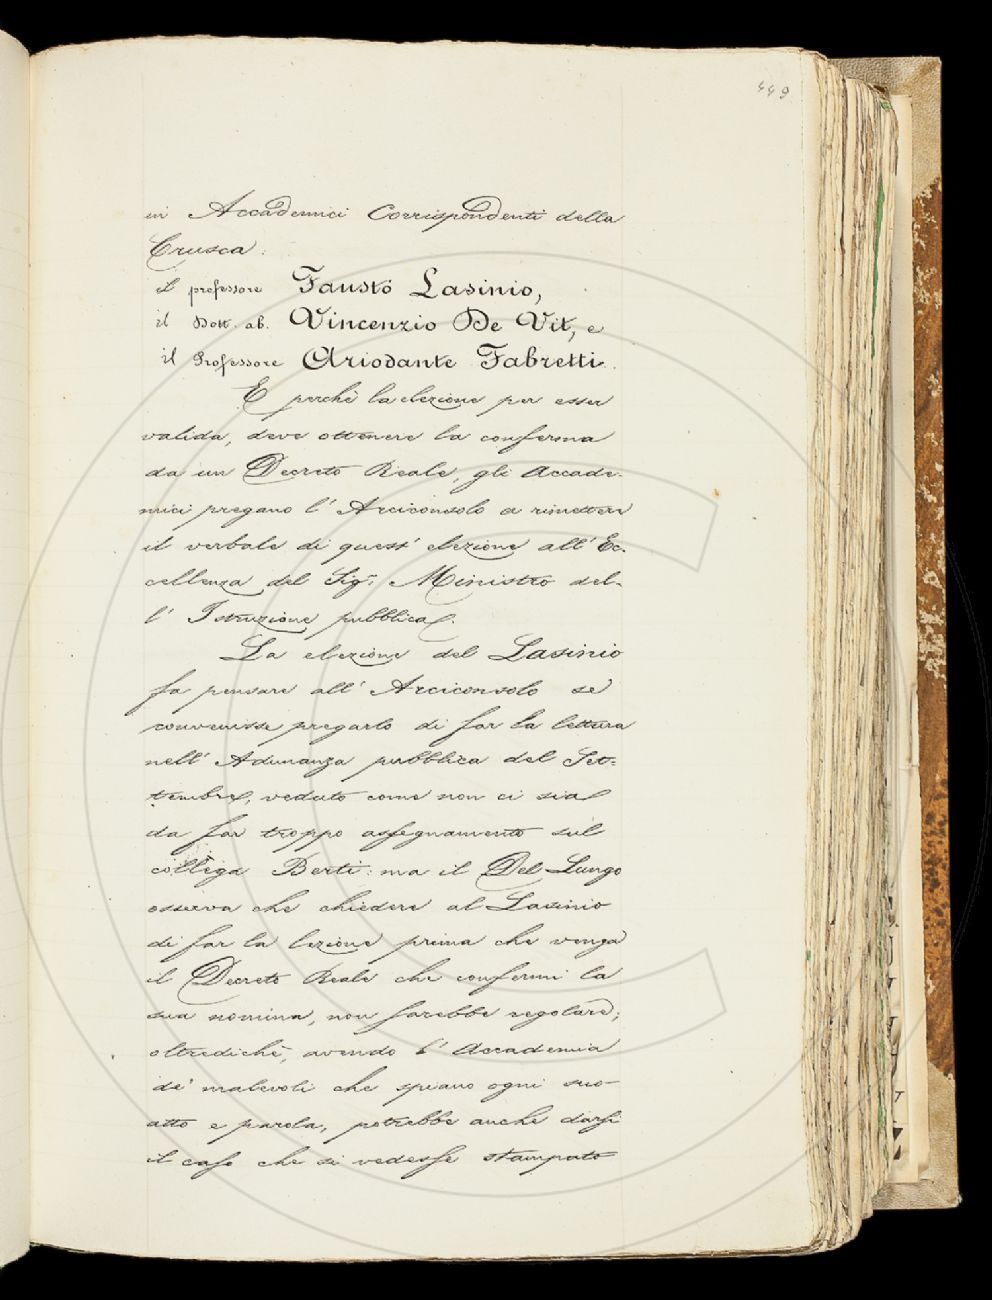 449
in Accademici Corrispondenti della
Crusca:
il professore Fausto Lasinio,
il Dott. ab. Vincenzio De Vit, e
il Professore Ariodante Fabretti.
E perchè la elezione per esser
valida, deve ottenere la conferma
da un Decreto Reale, gli Accade-
mici pregano l' Arciconsolo a rimetter
il verbale di quest' elezione all' Ec-
cellenza del Sigr. Ministro del-
l' Istruzione pubblica.
La elezione del Lasinio
fa pensare all' Arciconsolo se
convenisse pregarlo di far la lettura
nell' Adunanza pubblica del Set-
tembre, veduto come non ci sia
da far troppo assegnamento sul
collega Berti: ma il Del Lungo
osserva che chiedere al Lasinio
di far la lezione prima che venga
il Decreto Reale che confermi la
sua nomina, non sarebbe regolare;
oltredichè, avendo l' Accademia
de' malevoli che spiano ogni suo
atto e parola, potrebbe anche darsi
il caso che si vedesse stampato